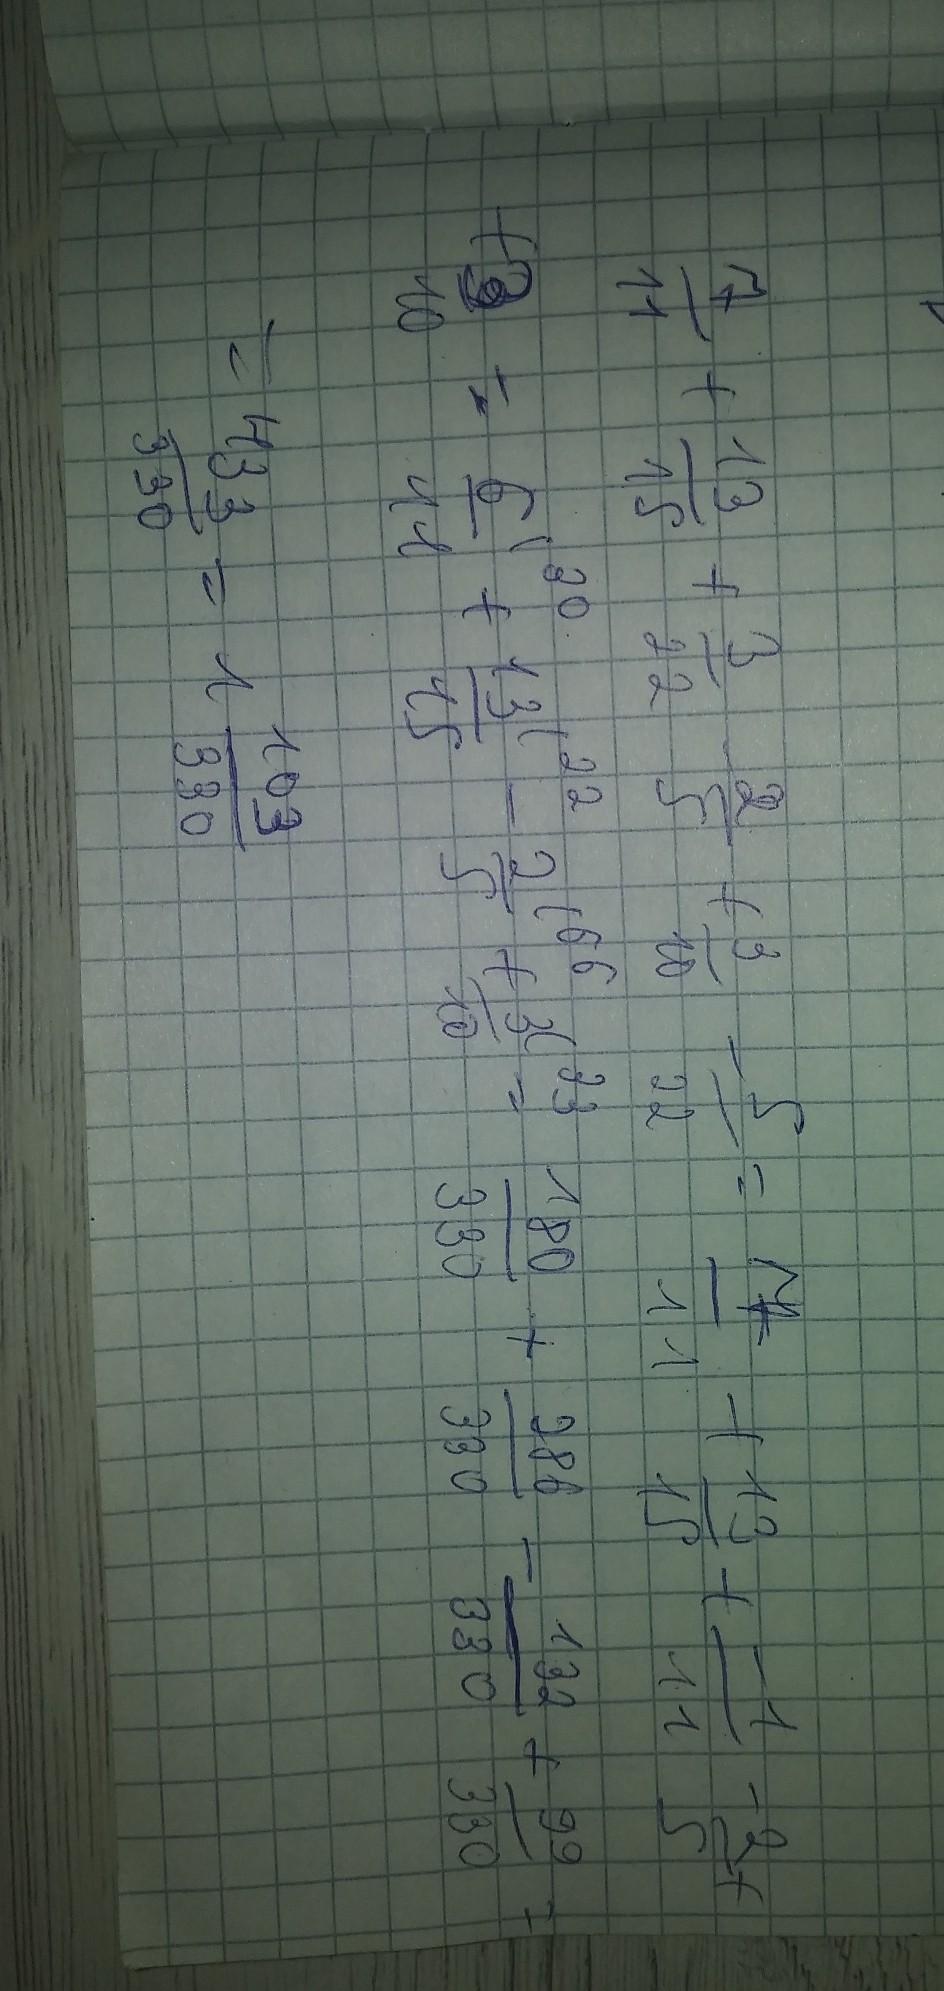 7/11 + 13/15 + 3/22 2/5 + 3/10 - 5/22 = 7/11 + 13/15 + -1/11 - 2/5 +
+ 3/10 = 6/11 (30 + 13/15 (22 - 2/5 (66 + 3/10 (33 = 180/330 + 286/330 - 132/330 + 99/330 =
= 433/330 = 1 103/330